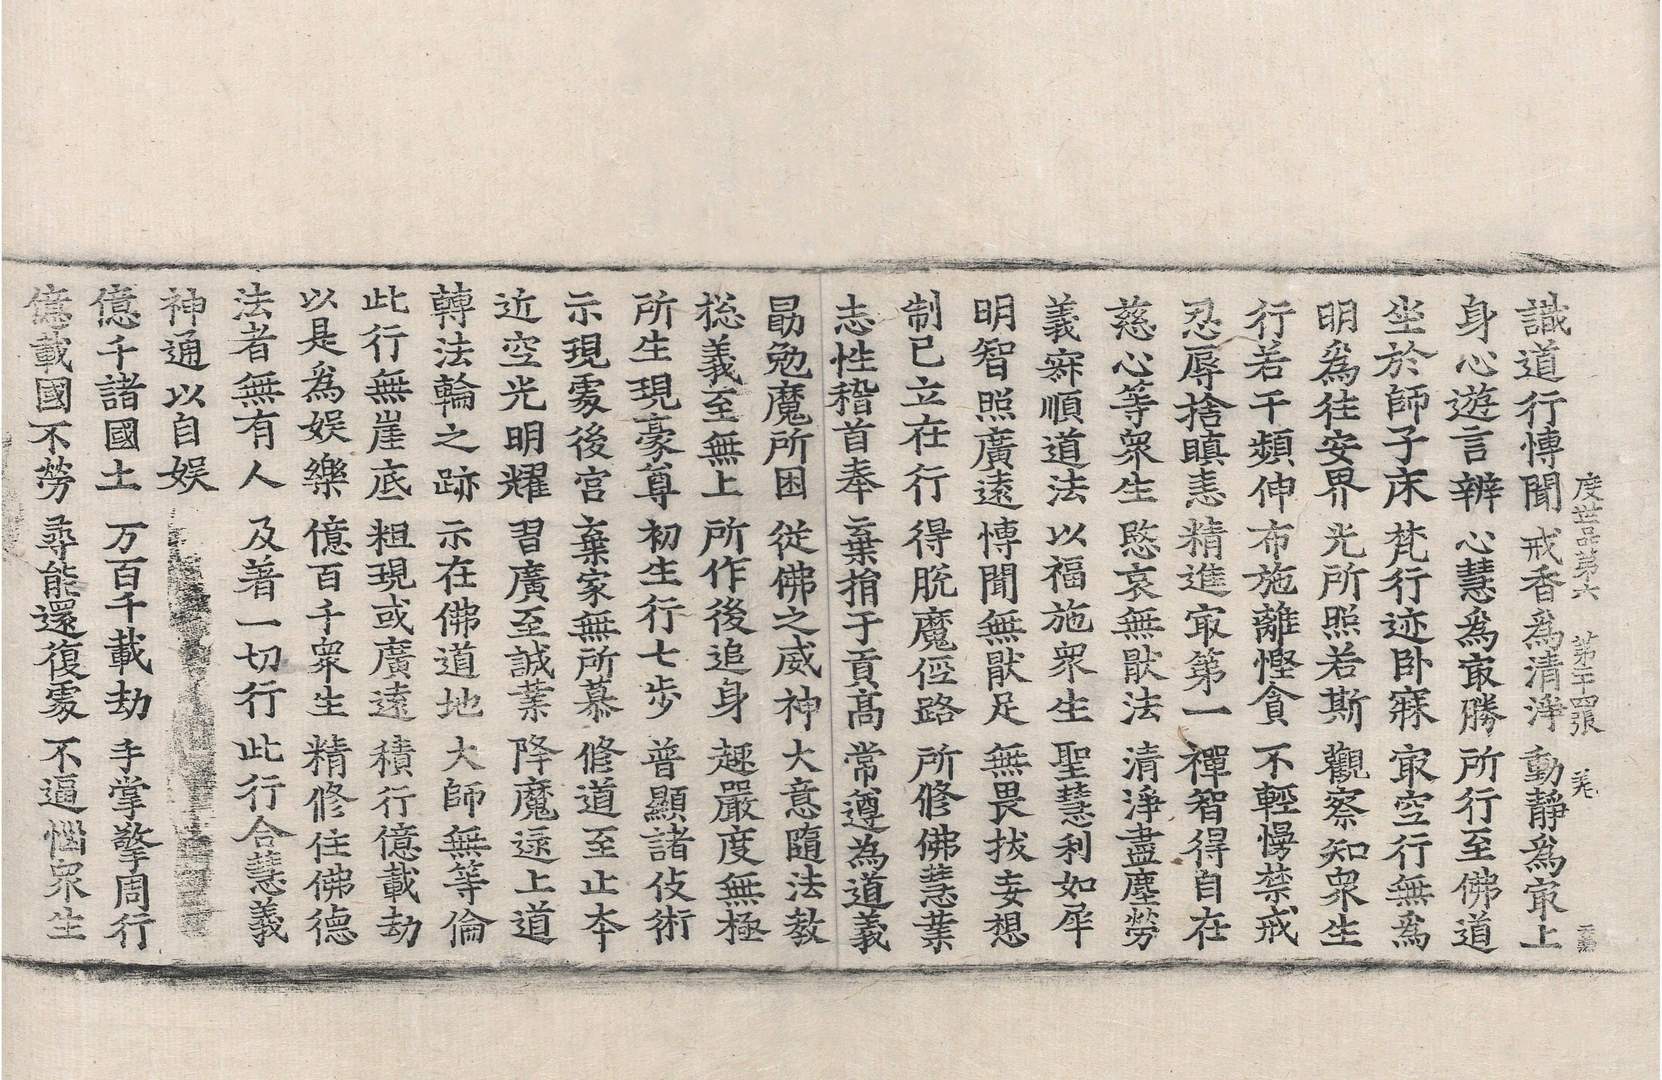 度世品第六 第二十四張 羌
識道行愽聞 戒香為清淨 動靜為㝡上
身心遊言辨 心慧為㝡勝 所行至佛道
坐於師子床 梵行迹卧寐 㝡空行無為
明為往安界 光所照若斯 觀察知衆生
行若干頻伸 布施離慳貪 不輕慢禁戒
忍辱捨瞋恚 精進㝡第一 禪智得自在
慈心等衆生 愍哀無猒法 清淨盡塵勞
義寂順道法 以福施衆生 聖慧利如犀
明智照廣遠 愽聞無猒足 無畏拔妄想
制己立在行 得脫魔俓路 所修佛慧業
志性稽首奉 棄捐于貢髙 常遵為道義
勗勉魔所困 從佛之威神 大意隨法教
揔義至無上 所作後追身 趣嚴度無極
所生現豪尊 初生行七步 普顯諸伎術
示現䖏後宮 棄家無所慕 修道至止夲
近空光明耀 習廣至誠業 降魔逮上道
轉法輪之跡 示在佛道地 大師無等倫
此行無崖底 粗現或廣遠 積行億載劫
以是為娛樂 億百千衆生 精修住佛德
法者無有人 及著一切行 此行合慧義
神通以自娛
億千諸國土 万百千載劫 手掌擎周行
億載國不勞 尋能還復䖏 不逼惱衆生